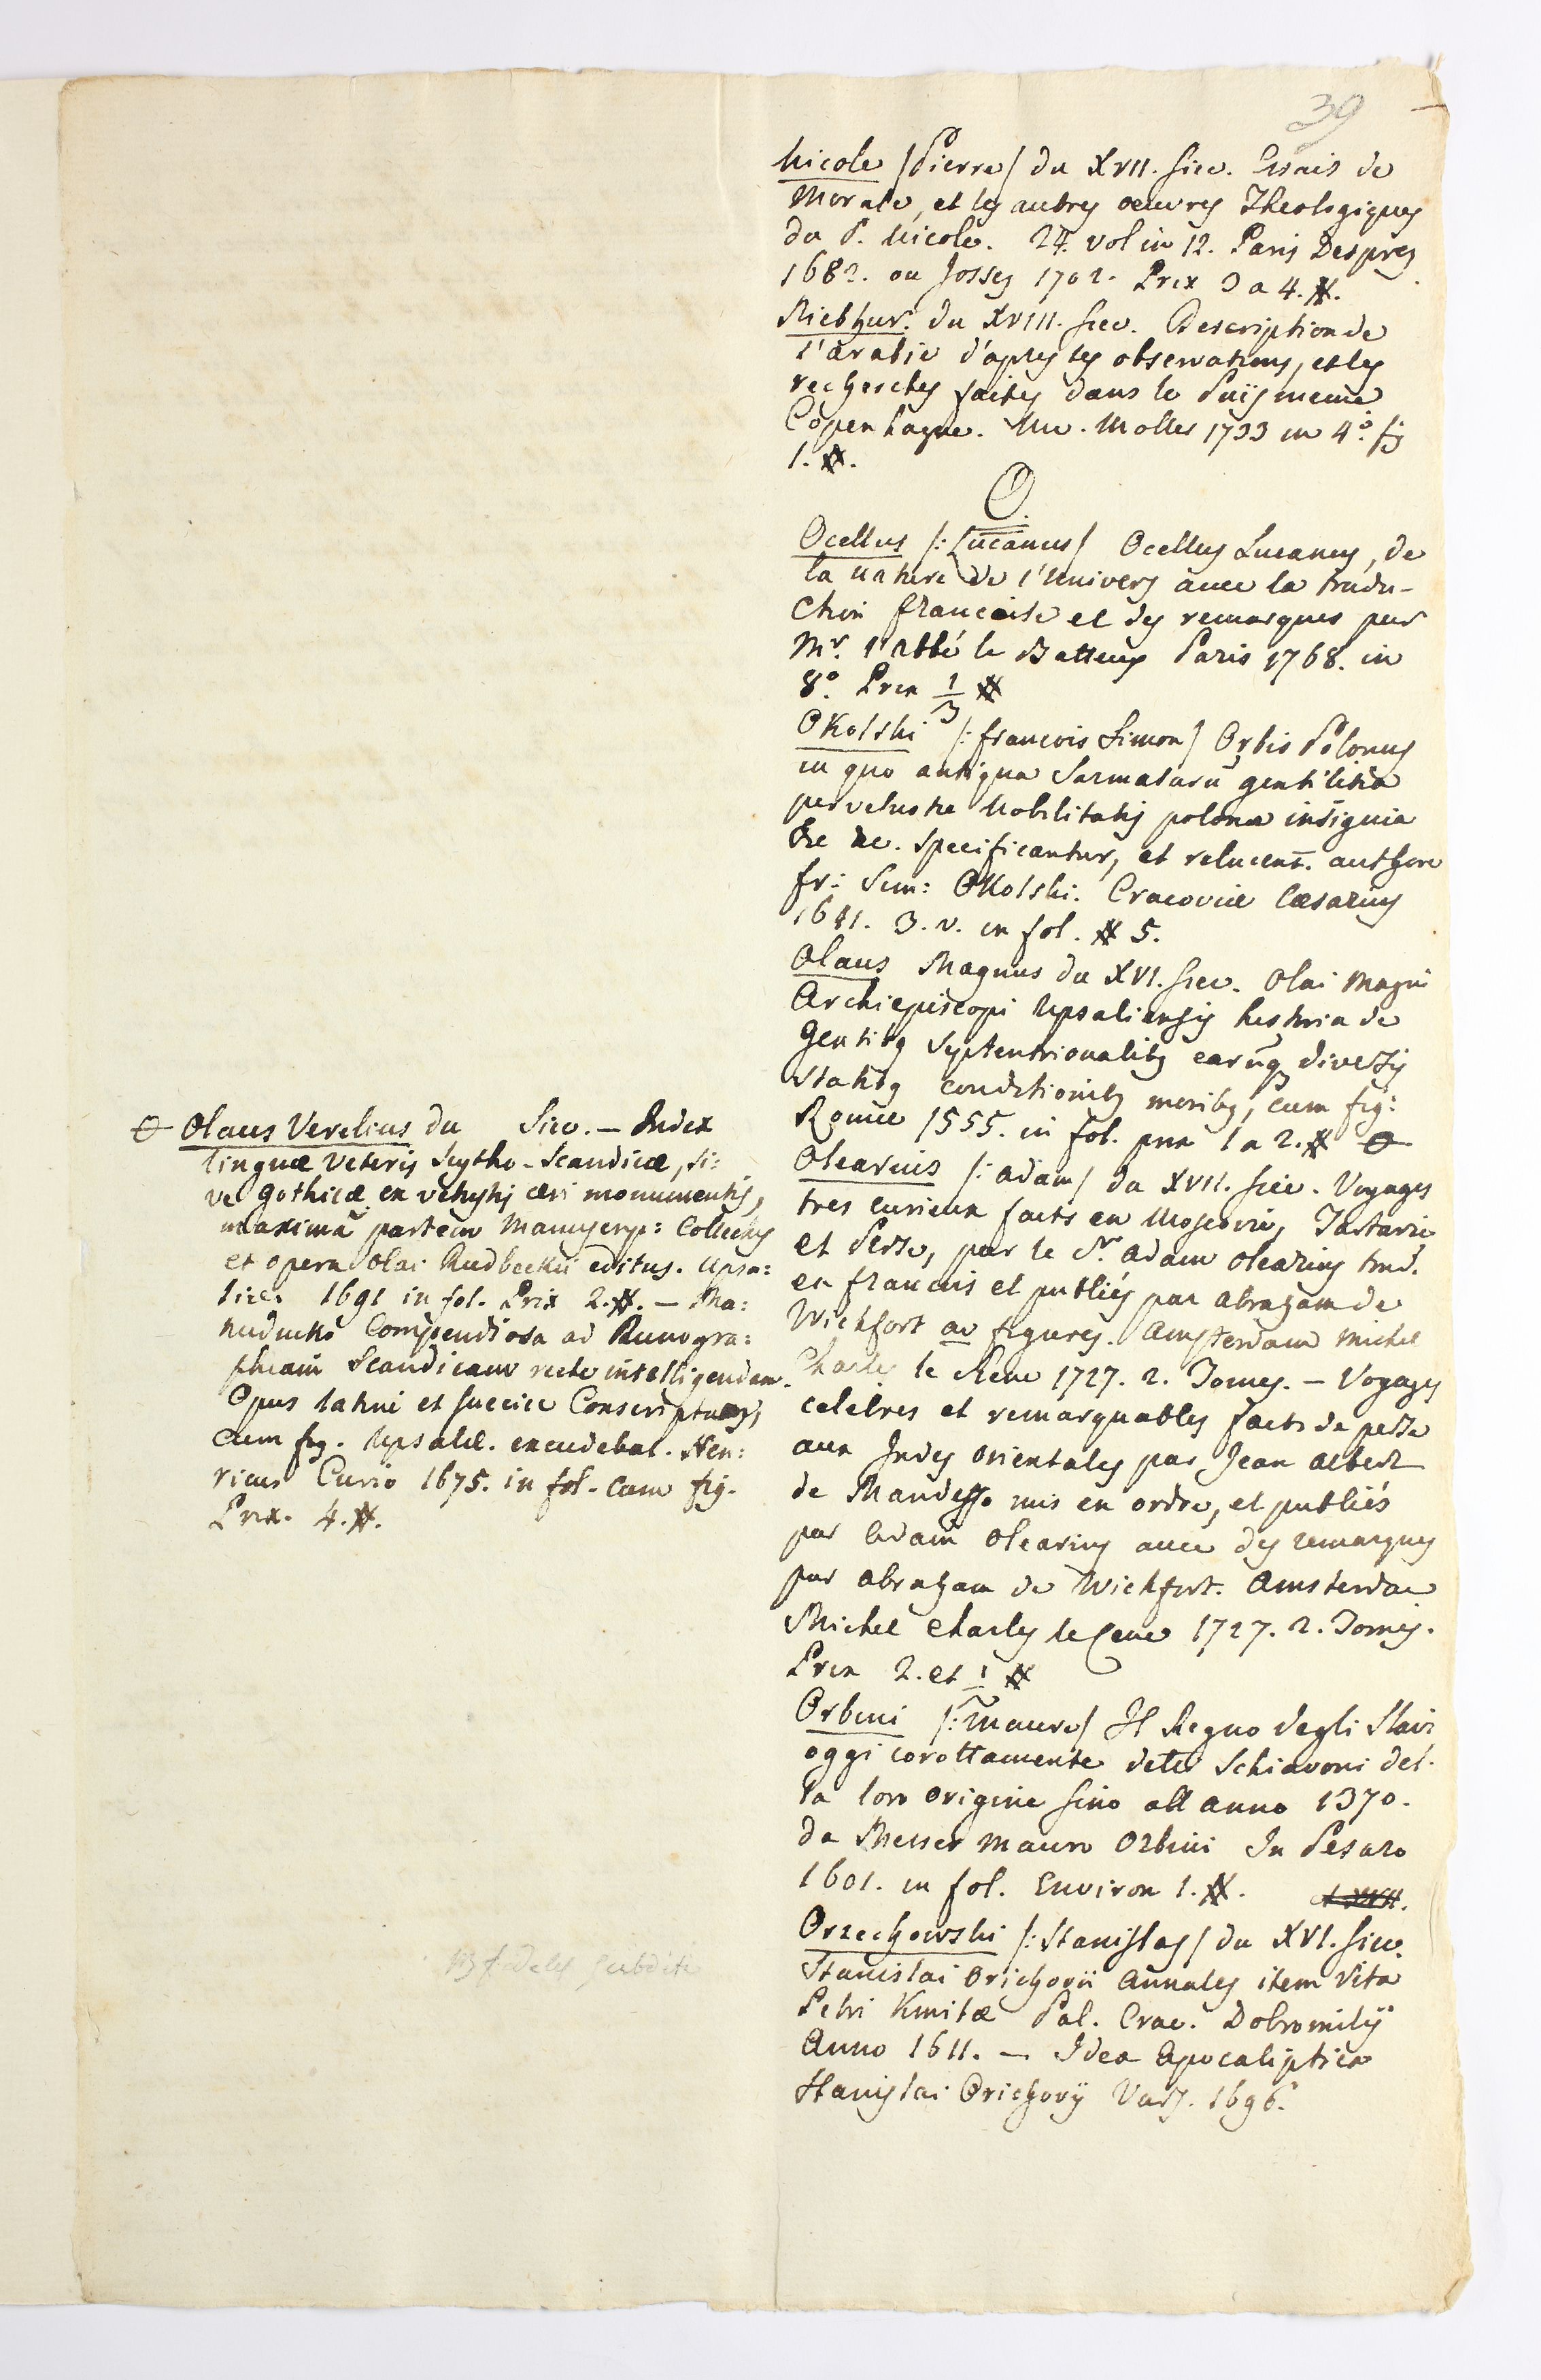 39
Nicole /Pierre/ du XVII. siec. Essais de
Morale, et les autres oeuvres Theologiques
du P. Nicole. 24. vol in 12. Paris Desprez
1682. ou Josses 1702. Prix 3 a 4. #.
Niebhur. du XVIII. siec. Description de
l'arabie d'apres les observations, et les
recherches faites dans le Païs meme
Copenhague. Nic. Moller 1733 in 4º. fig
1. #.
O.
Ocellus /: Lucanus/ Ocellus Lucanus, de
la nature de l'Univers avec la tradu-
ction francoise et des remarques par
Mr. l'Abbé le Batteux Paris 1768. in
8º. Prix 1/3 #
Okolski /: francois Simon/ Orbis Polonus
in quo antiqua Sarmatarū gentilitia
pervetustae Nobilitatis polonae insignia
&c &c. specificantur, et relucent. authore
fr: Sim: Okolski. Cracoviae Caesarius
1641. 3. v. in fol. # 5.
Olaus Magnus du XVI. siec. Olai Magni
Archiepiscopi Upsaliensis historia de
Gentibg Septentrionalibg earūq diversis
statibg conditionibg moribg, Cum fig:
Romae 1555. in fol. prix 1 a 2. # O
Olearius /: adam/ du XVII. siec. Voyages
tres curieux faits en Moscovie, Tartarie
et Perse, par le Sr. Adam Olearius trad.
en francois et publiés par abraham de
Wickfort av figures. Amsterdam Michel
Charles le Cene 1727. 2. Tomes. – Voyages
celebres et remarquables faits de perse
aux Indes orientales par Jean albert
de Mandelslo mis en ordre, et publiés
par Adam Olearius avec des remarques
par abraham de Wickfort. Amsterdam
Michel Charles le Cene 1727. 2. Tomes.
Prix 2. et 1/2 #
Orbini /: Mauro/ Il Regno degli Slavi
oggi corottamente detti Schiavoni del-
la loro origine sino all anno 1370.
da Messer Mauro Orbini In Pesaro
1601. in fol. Environ 1. #.
Orzechowski /: Stanislas/ du XVI. siec.
Stanislai Orichovii Annales item Vita
Petri Kmitae Pal. Crac. Dobromilij
Anno 1611. – Idea Apocaliptica
Stanislai Orichovij Vars. 1696.
O Olaus Verelius du Siec. – Index
linguae Veteris Scytho-Scandicae, si:
ve Gothicae ex vetustis aevi monumentis,
maximā partem Manuscrip: Collectus
et opera Olai Rudbeckii editus. Upsa:
liae. 1691 in fol. Prix 2. #. – Ma:
nuductio Compendiosa ad Runogra:
phiam Scandicam recte intelligendam.
Opus latine et suecice Conscriptum,
cum fig. Upsalae. excudebat. Hen:
ricus Curio 1675. in fol. Cum fig.
Prix. 4. #.